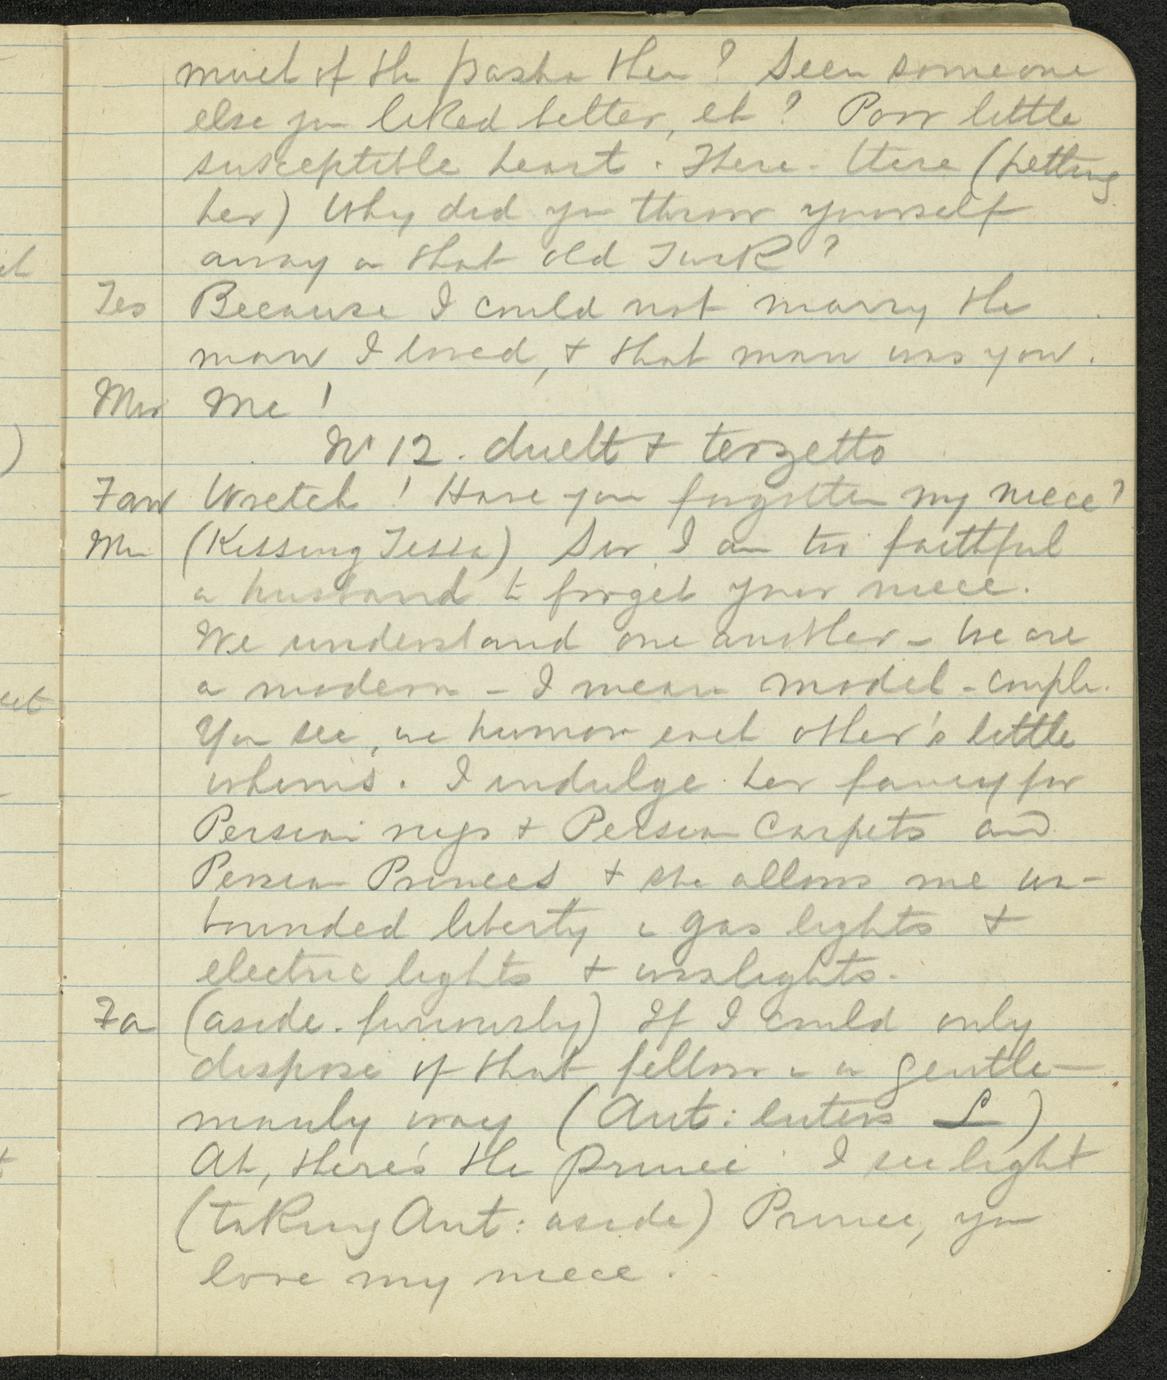 much of the pasha then? Seen someone
else you liked better, eh? Poor little
susceptible heart. There - there (petting
her) Why did you throw yourself
away on that old Turk?
Tes Because I could not marry the
man I loved, & that man was you.
Mur Me!
No 12. duett & terzetto
Faw Wretch! Have you forgotten my niece?
Mu (Kissing Tessa) Sir I am too faithful
a husband to forget your niece.
We understand one another - we are
a modern - I mean model - couple.
You see, we humor each other's little
whims. I indulge her fancy for
Persian rugs & Persian Carpets and
Persian Princes & she allows me un-
bounded liberty in gas lights &
electric lights & waxlights.
Fa (aside. furiously) If I could only
dispose of that fellow in a gentle-
manly way (Ant: enters L)
Ah, there's the prince I see light
(taking Ant: aside) Prince, you
love my niece.